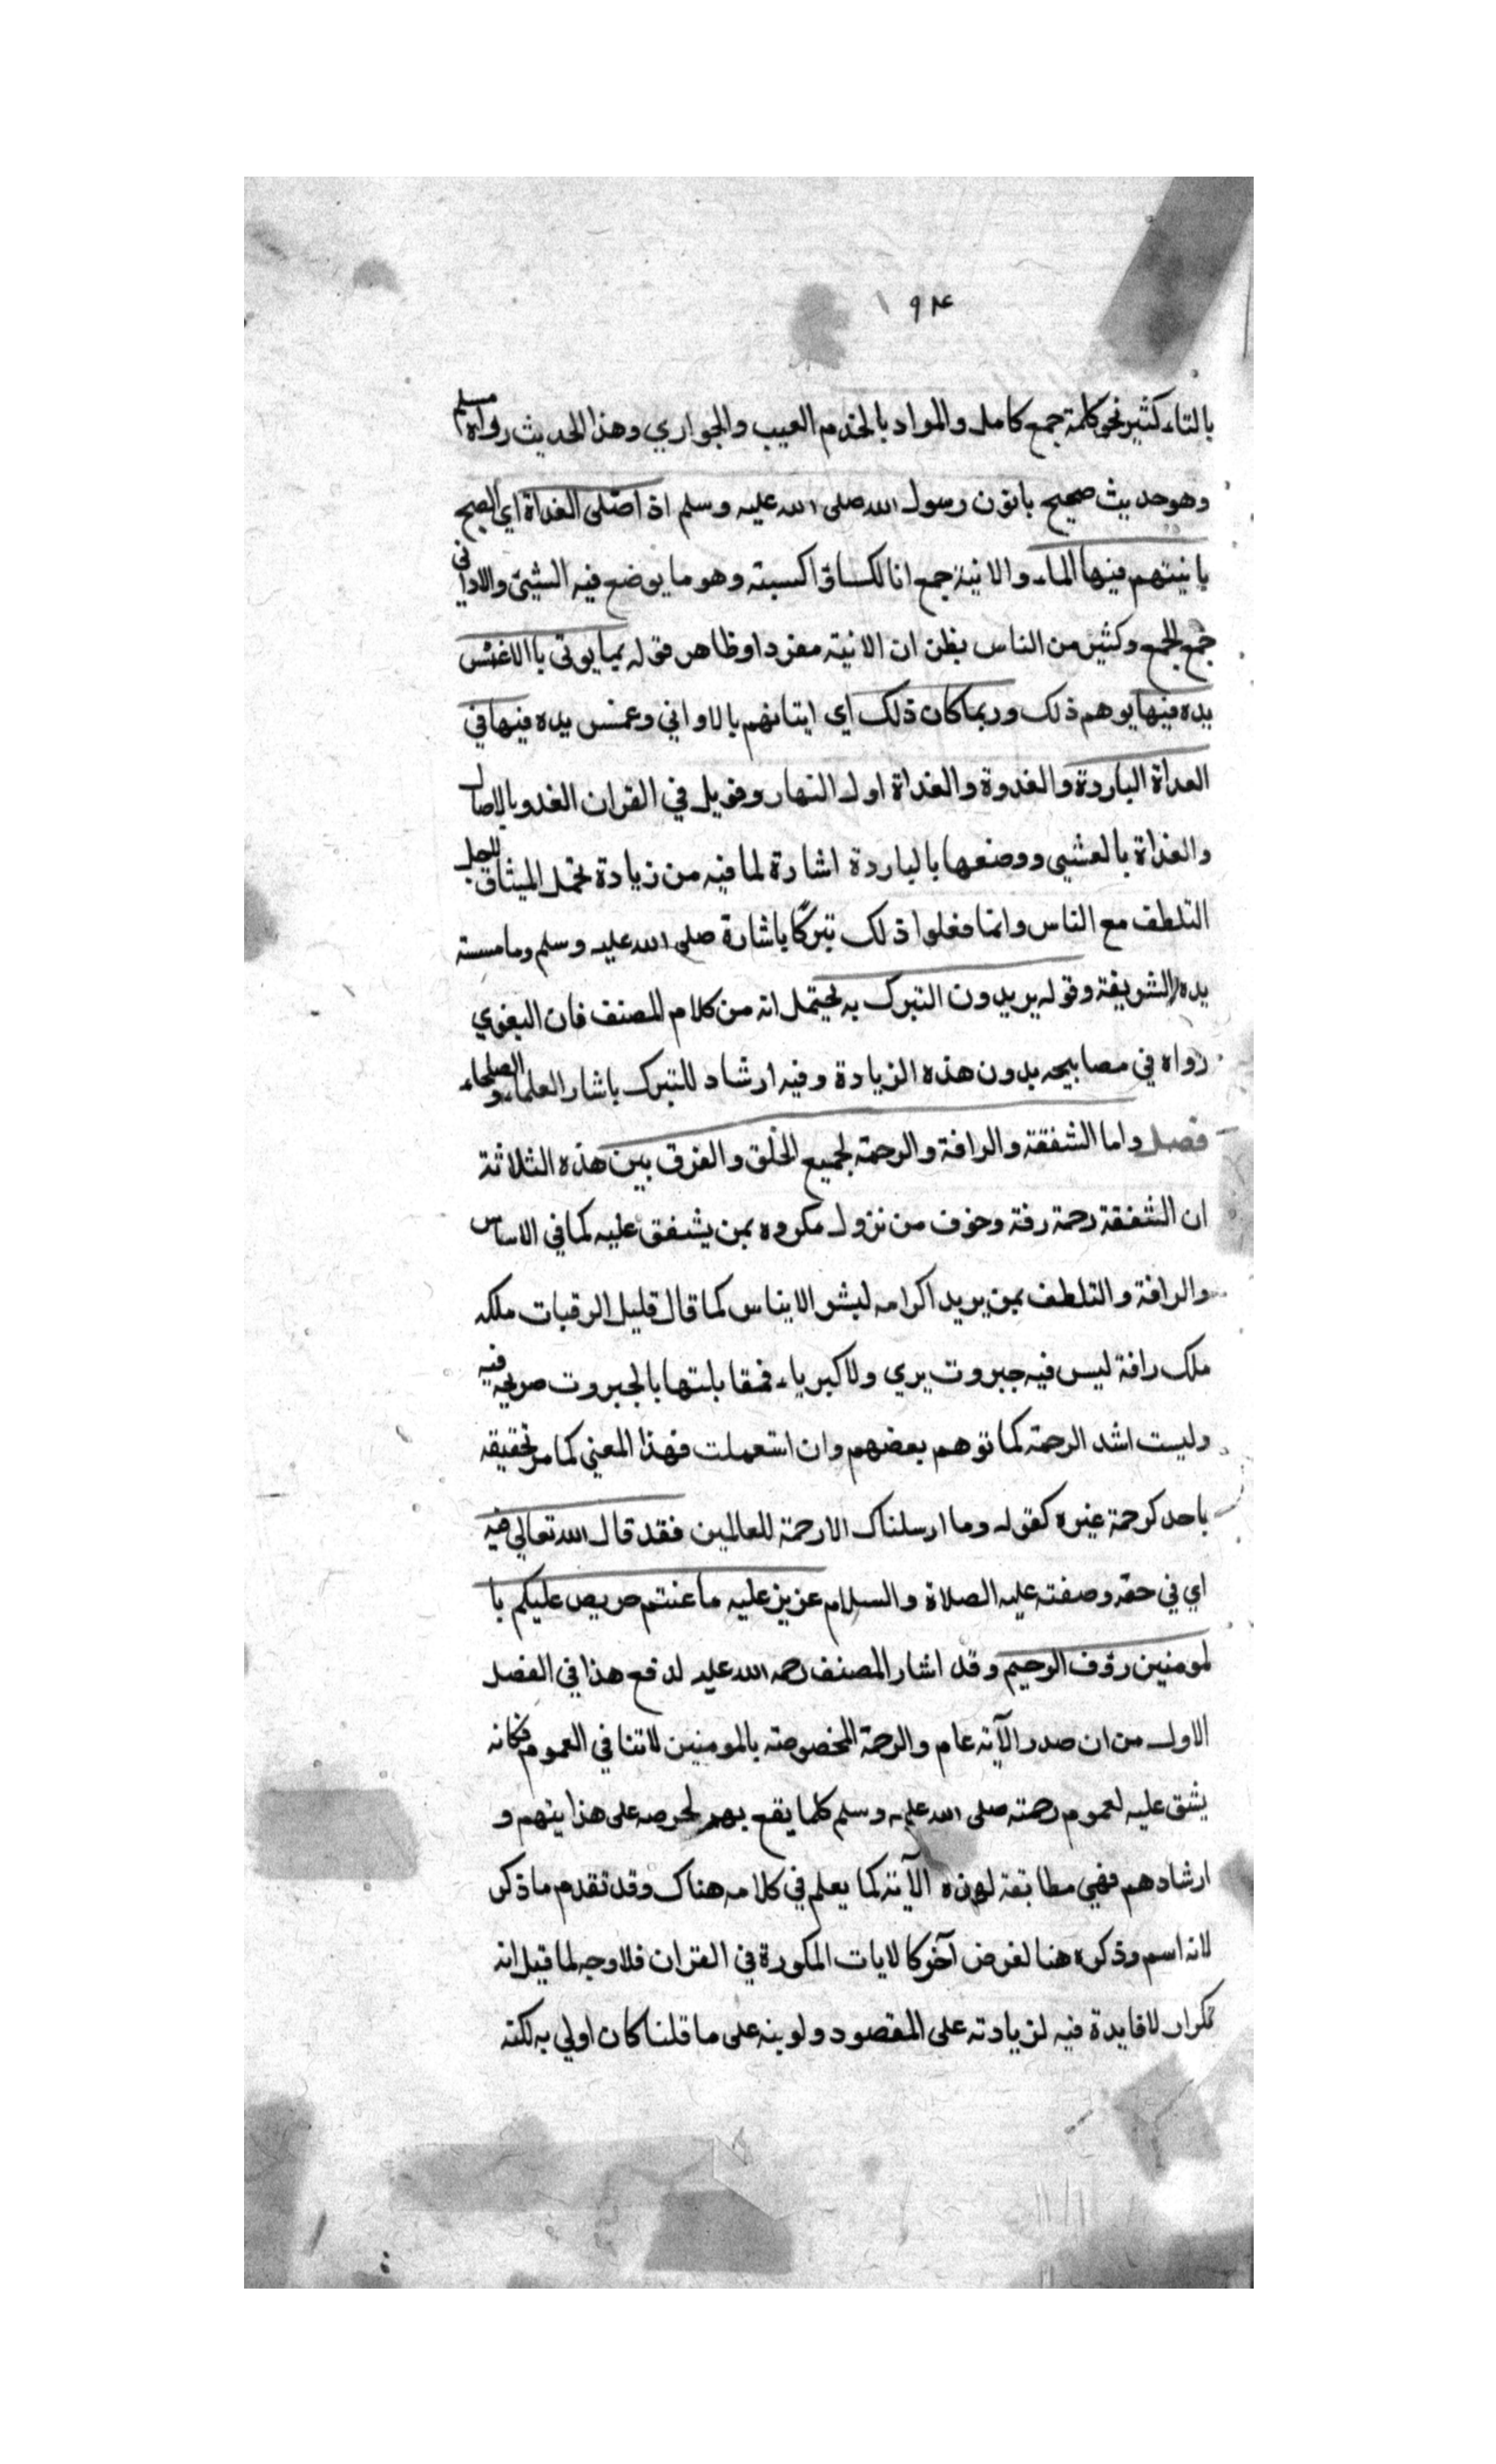 ١٩٤
بالتاء كثير نحو كلمة جمع كامل والمواد بالخدم العيب والجواري وهذا الحديث رواه مسلم
وهو حديث صحيح ياتون رسول الله صلى الله عليه وسلم اذ اصلى الغداة اي الصبح
بانيتهم فيها الماء والانية جمع انا لكساو اكسبته وهو ما يوضع فيه الشيئ والاداني
جمع الجمع وكثير من الناس يظن ان الانية مفردا وظاهر قوله يما يوتى باالاغنس
يده فيها يوهم ذلك وربما كان ذلك اي ايتانهم بالاواني وغمس يده فيها في
الغداة الباردة والغدوة والغداة اول النهار وقويل في القران الغدو بالاصال
والغداة بالعشيى ووصفها بالباردة اشارة لما فيه من زيادة تحمل الميثاق للجل
التلطف مع الناس وانما فعلوا ذلك تبركا باشارة صلى الله عليه وسلم وما مسته
يده الشريفة وقوله يريدون التبرك به يحتمل انه من كلام المصنف فان البغوي
رواه في مصابيحه بدون هذه الزيادة وفيه ارشاد للتبرك باشار العلماء والصلحاء
فصل واما الشفقة والرافة والرحمة لجميع الخلق والفرق بين هذه الثلاثة
ان الشفقة رحمة رفة وخوف من نزول مكروه بمن يشفق عليه كما في الاساس
والرافة والتلطف بمن يريد اكرامه ليشو الايناس كما قال قليل الرقيات ملكه
ملك رافة ليس فيه جبروت يري ولا كبرياء فمقابلتها بالجبروت صريحه فيه
وليست اشد الرحمة كما توهم بعضهم وان استعملت فهذا المعني كما مر تحقيقه
باحد كرحمة غيره كقوله وما ارسلناك الا رحمة للعالمين فقد قال الله تعالي فيه
اي في حقه وصفته عليه الصلاة والسلام عزيز عليه ما عنتم حريص عليكم با
لمومنين رؤف الرحيم وقد اشار المصنف رحمه الله عليه لدفع هذا في الفصل
الاول من ان صدر الآية عام والرحمة المخصوصة بالمومنين لاتنا في العموم فكانه
يشق عليه لعموم رحمته صلى الله عليه وسلم كلما يقع بهم لحرصه على هذا يتهم و
ارشادهم فهي مطابقة لهذه الآية كما يعلم في كلامه هناك وقد تقدم ما ذكر
لانه اسم وذكره هنا لغرض آخر كالايات المكورة في القران فلا وجه لما قيل انه
تكرار لا فايدة فيه لزيادته على المقصود ولو بنه على ما قلنا كان اولي به لكنه